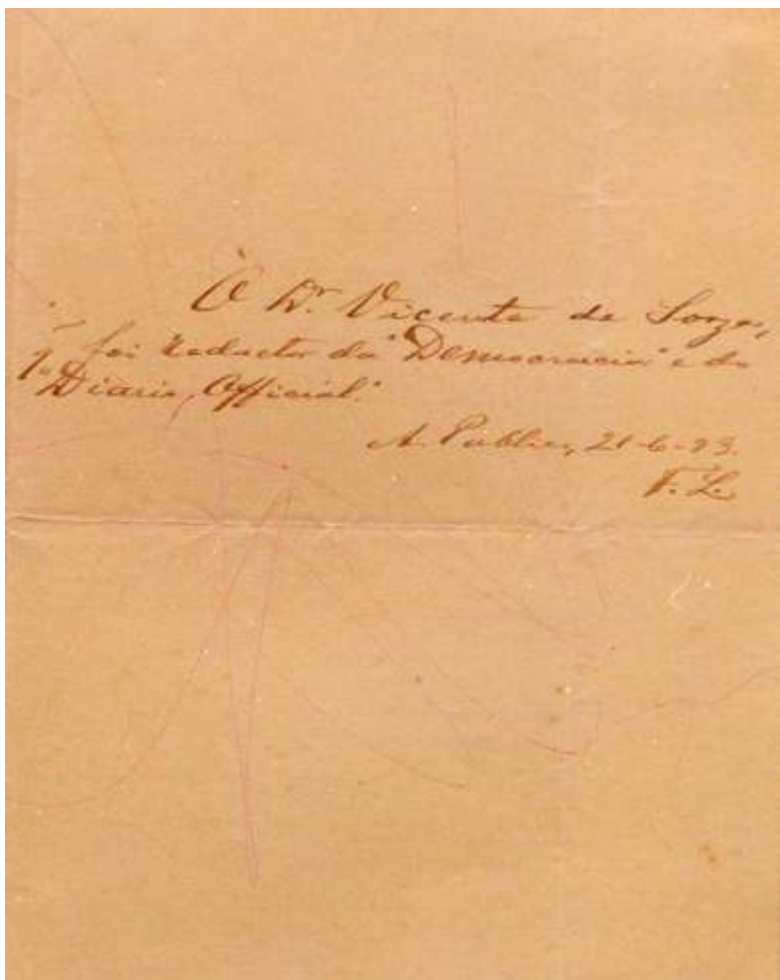 O Dr. Vicente de Souza,
q. foi redactor da "Democracia" e do
"Diario Official."
A. Publico, 21-6-93.
F. L.